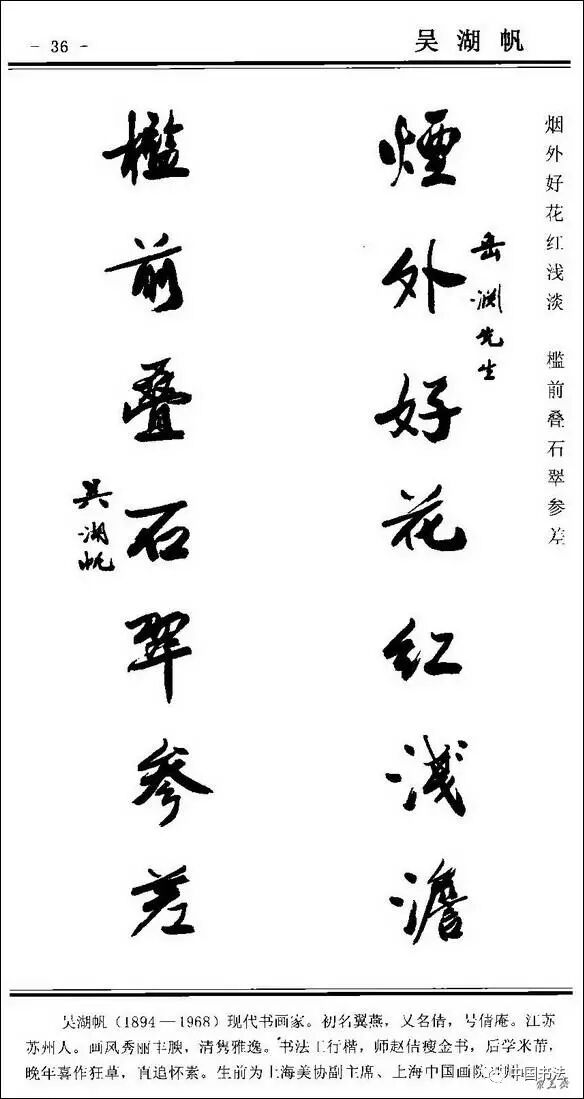 - 36 -
吴湖帆
烟外好花红浅淡 槛前叠石翠参差
岳渊先生
煙外好花紅淺澹
檻前叠石翠参差
吴湖帆
吴湖帆（1894—1968）现代书画家。初名翼燕，又名倩，号倩庵。江苏
苏州人。画风秀丽丰腴，清隽雅逸。书法工行楷，师赵佶瘦金书，后学米芾，
晚年喜作狂草，直追怀素。生前为上海美协副主席、上海中国画院画师。
中国书法